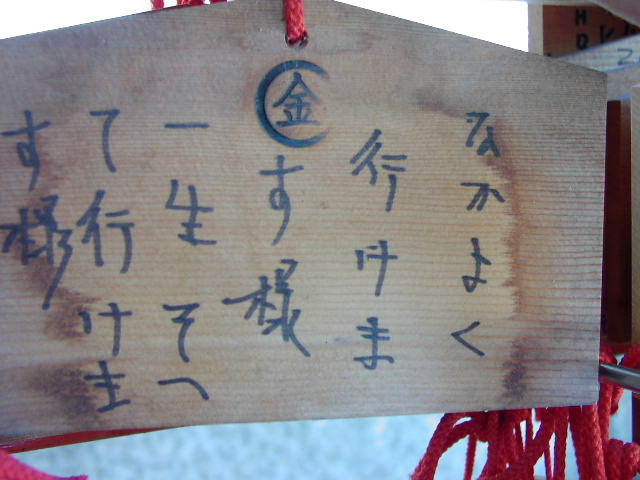 なかよく
行けま
金
す様
一生そへ
て行けま
す様